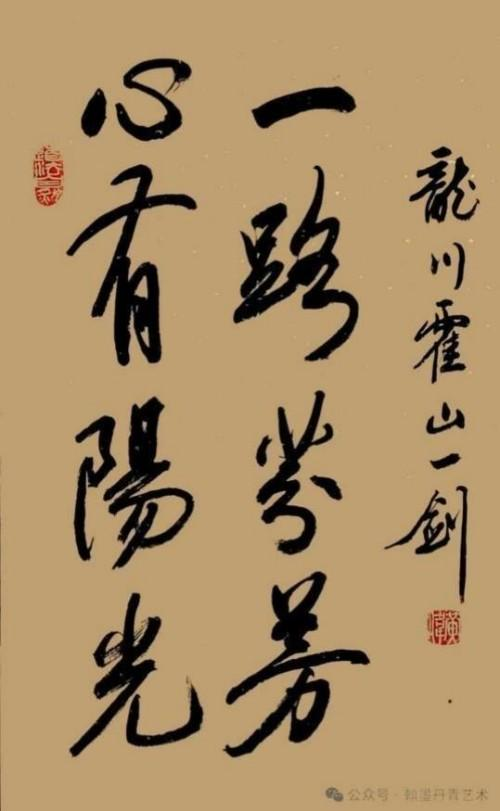 心有陽光
一路芬芳
龍川霍山一剑
公众号 · 翰墨丹青艺术